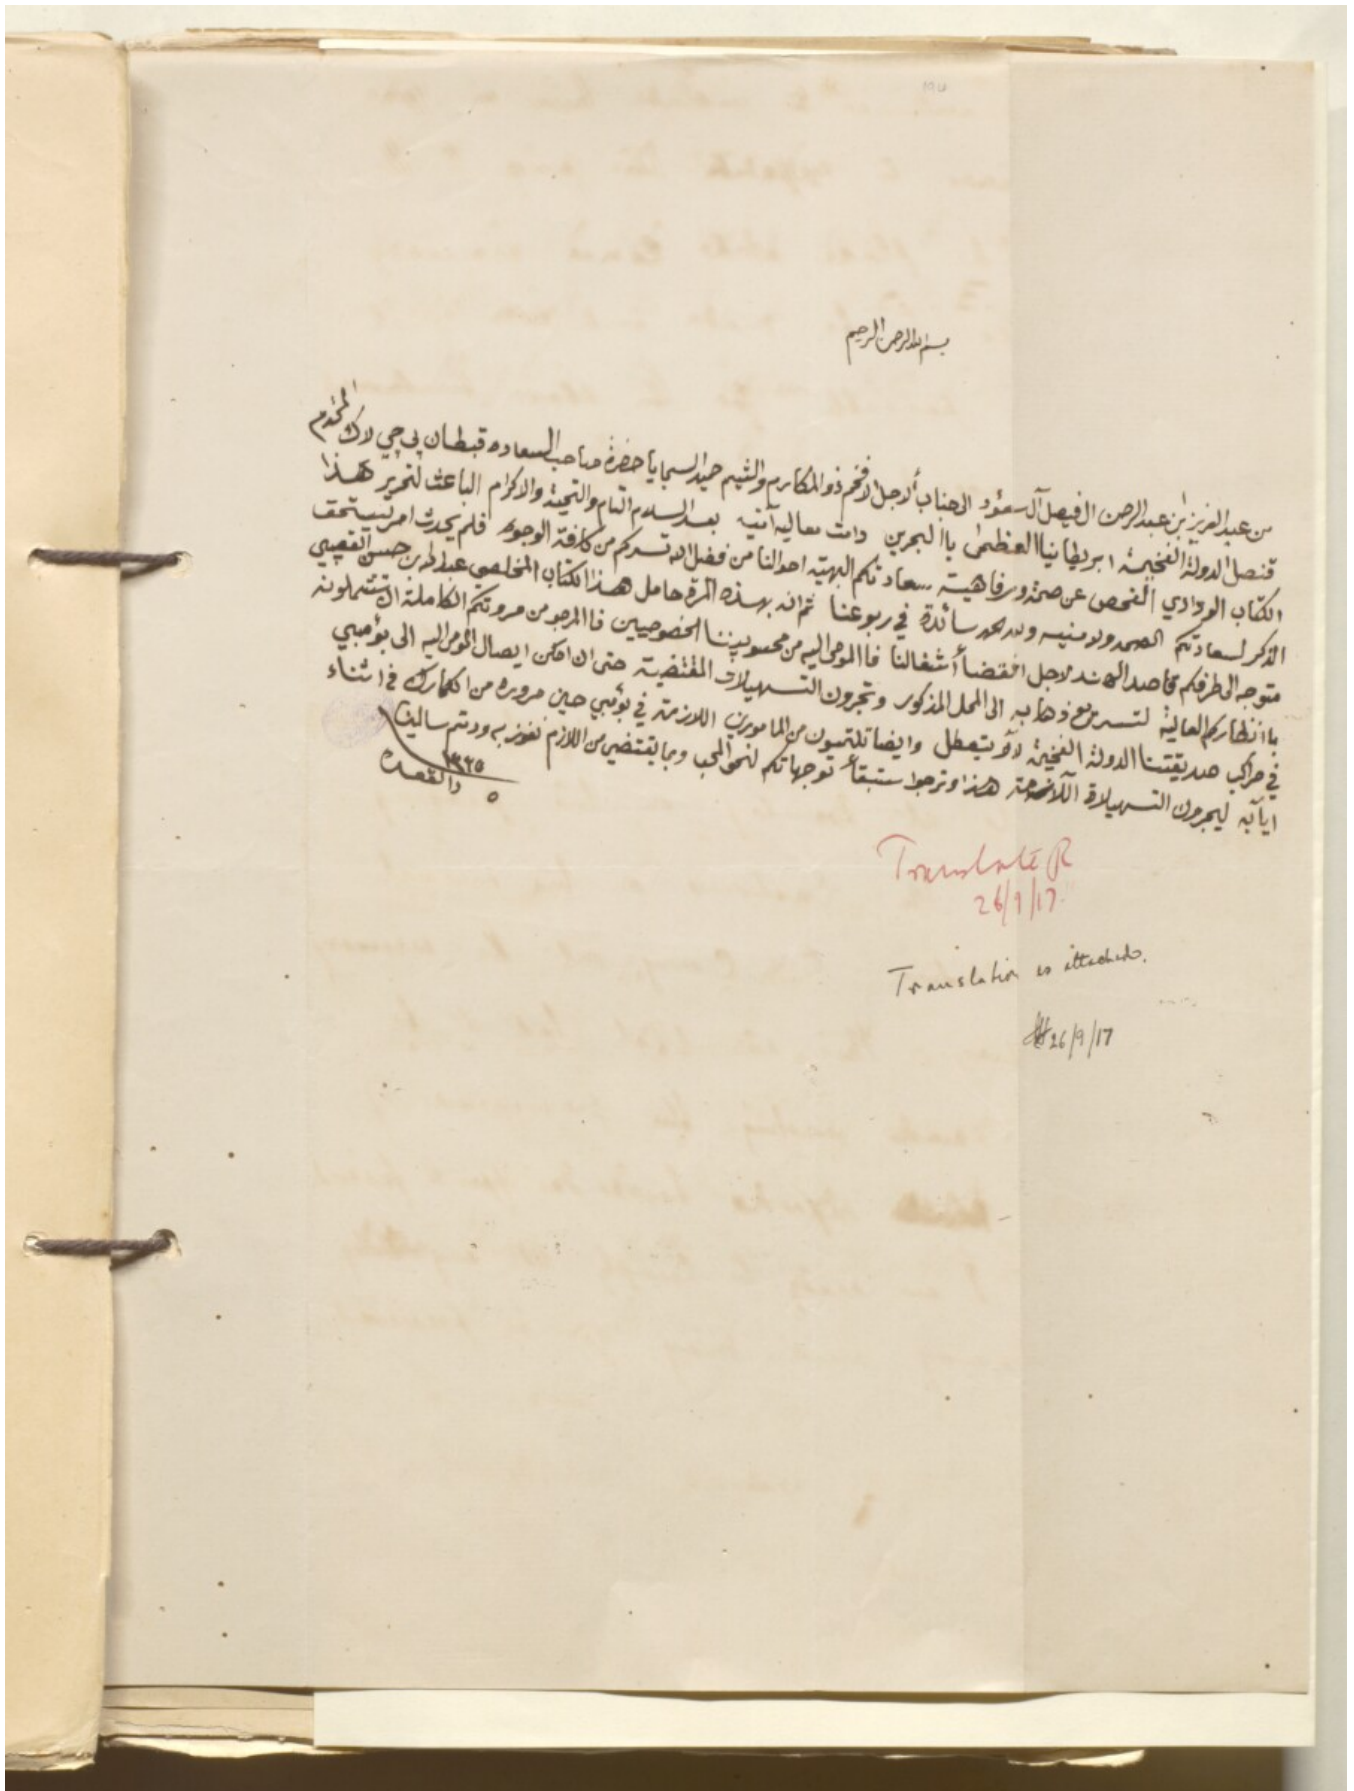 بسم الله الرحمن الرحيم
من عبد العزيز ابن عبد الرحمن ال فيصل آل سعود الى جناب ألاجل الافخم ذو المكارم والشيم حميد السجايا حضرة صاحب السعاده قبطان پي جي لاك المحترم
قنصل الدولة الفخيمة ابريطانيا العظمى باالبحرين دامت معاليه آمين بعد السلام التام والتحية والاكرام الباعث لتحرير هذا
الكتاب الودادي الفحص عن صحة ورفاهية سعادتكم البهية احوالنا من فضل الله تسركم من كافة الوجوه فلم يحدث امر يستحق
الذكر لسعادتكم الصحه والامنيه ولله الحمد سائدة في ربوعنا ثم انه بهذه المرة حامل هذا الكتاب المخلص عبد الله بن حسن القصيبي
متوجه الى طرفكم قاصد الهند لاجل اقتضا أشغالنا فا المومى اليه من محسوبيننا الخصوصيين فا المرجو من مروتكم الكاملة ان تشملونه
باانظاركم العالية لتسريع ذهابه الى المحل المذكور وتجرون التسهيلات المقتضية حتى ان امكن ايصال المومى اليه الى بومبي
في مراكب صديقتنا الدولة الفخيمة لأو يتعطل وايضا تلتمسون من المامورين اللازمة في بومبي حين مروره من الكمارك في اثناء
ايابه ليجرون التسهيلات اللازمة هذا ونرجوا ستبقاء توجهاتكم لنحو المحب وبما يقتضي من اللازم نفوز به ودمتم سالمين
١٣٣٥
٥ ذالقعده
Translate R
26/9/17
Translation is attached.
26/9/17